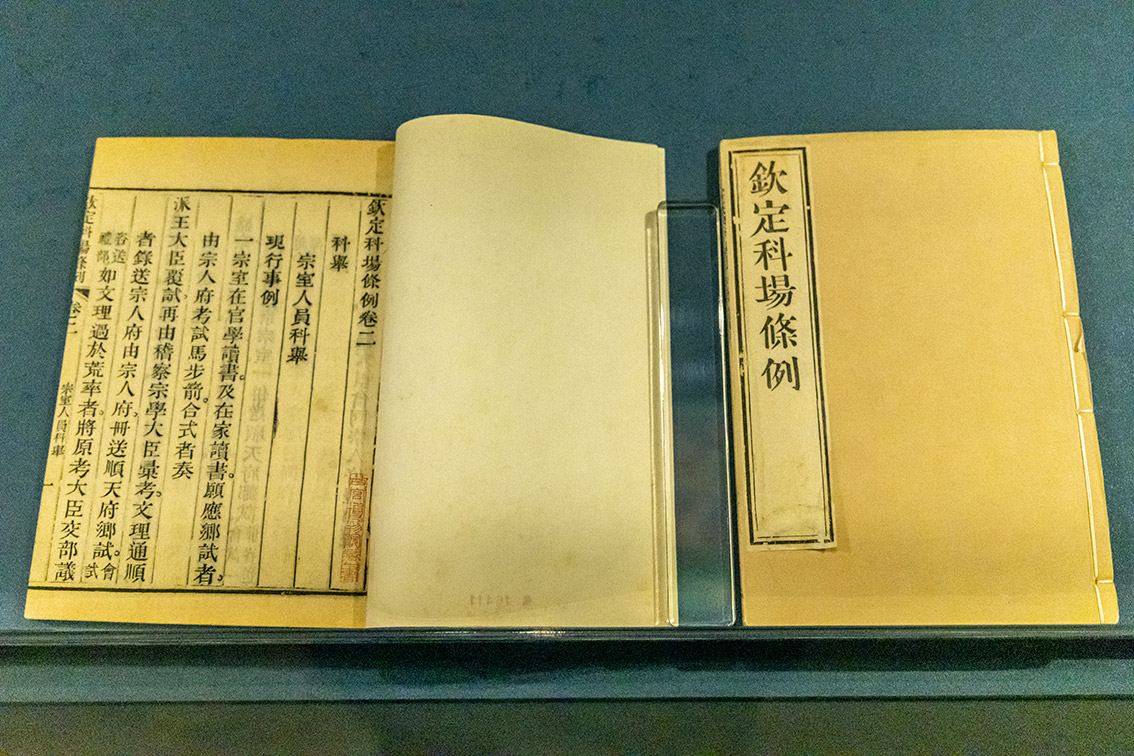 欽定科場條例卷二
科舉
宗室人員科舉
現行事例
一宗室在官學讀書。及在家讀書。願應鄉試者。
由宗人府考試馬步箭。合式者奏
派王大臣覆試。再由稽察宗學大臣彙考。文理通順
者。錄送宗人府。由宗人府。冊送順天府鄉試。會試
咨送禮部。如文理過於荒率者。將原考大臣交部議
欽定科場條例
卷二
宗室人員科舉
一
欽定科場條例